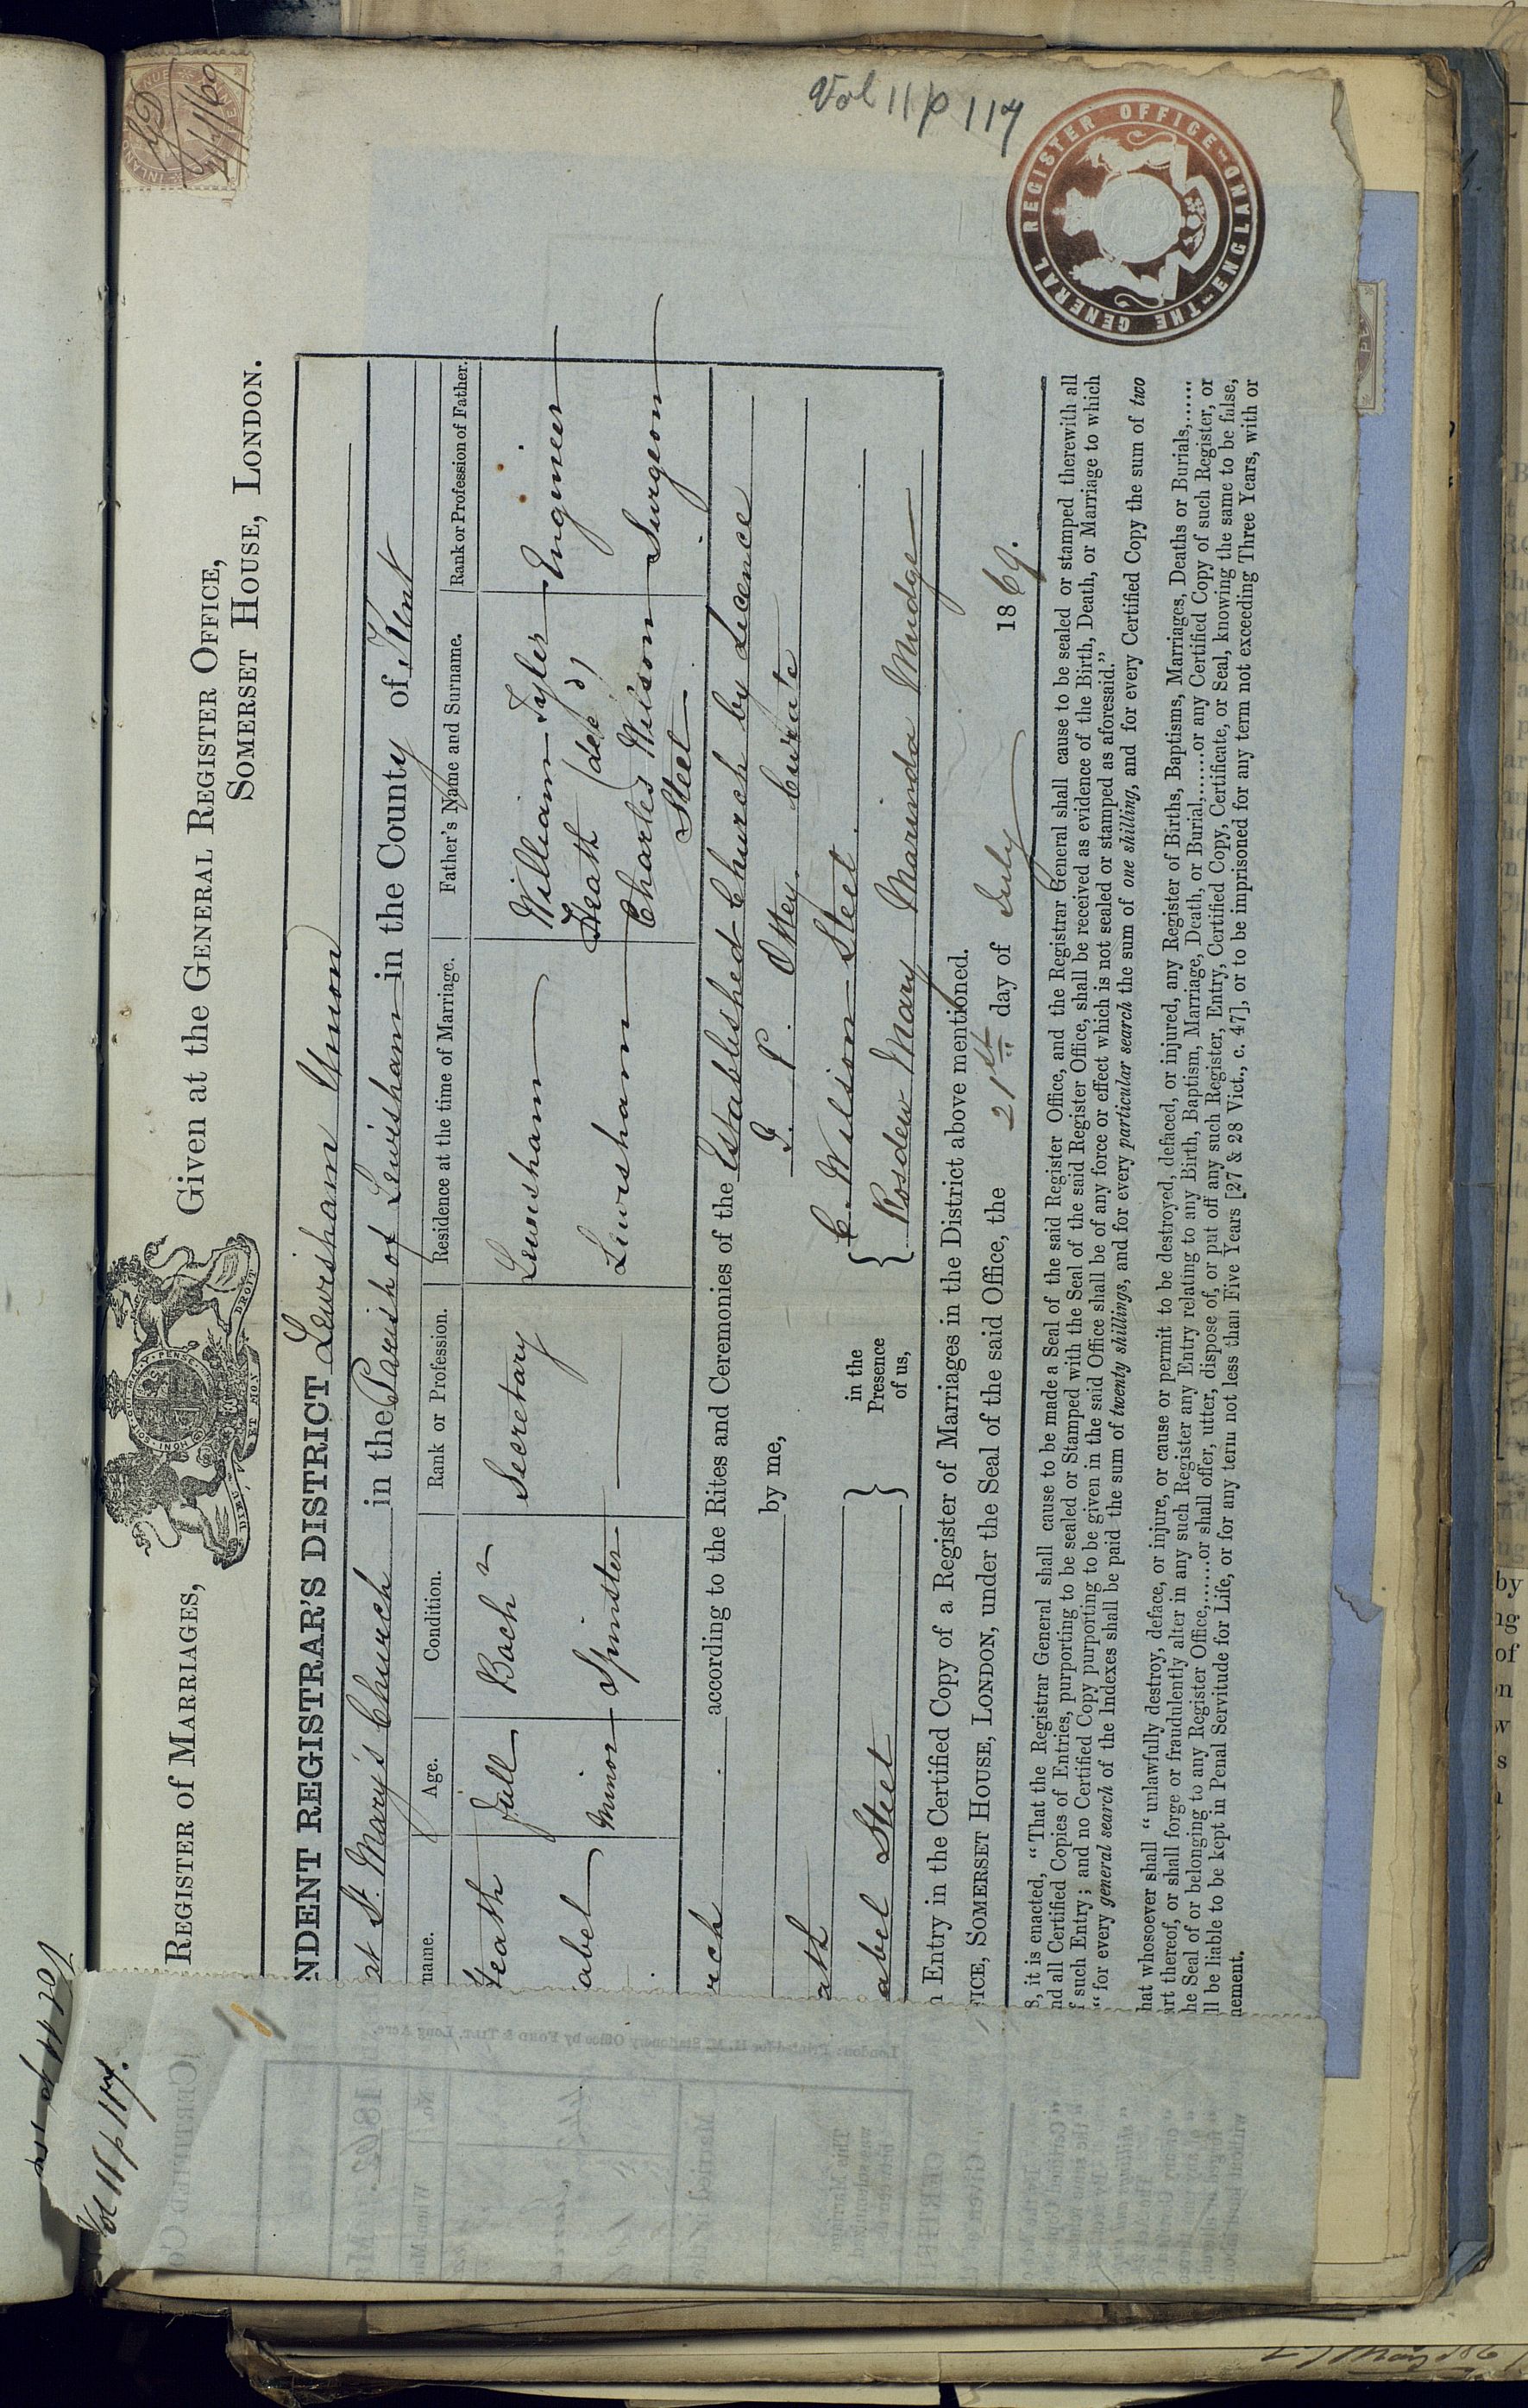 Vol 11 p 117.
REGISTER OF MARRIAGES, Given at the GENERAL REGISTER OFFICE,
SOMERSET HOUSE, LONDON.
HONI · SOIT · QUI · MAL · Y · PENSE
DIEU ET MON DROIT
NDENT REGISTRAR'S DISTRICT Lewisham Union
at St. Mary's Church in the Parish of Lewisham in the County of Kent
name. Age. Condition. Rank or Profession. Residence at the time of Marriage. Father's Name and Surname. Rank or Profession of Father.
Heath Full Bachr Secretary Lewisham William Tyler Engineer
Heath (dec'd)
abel Minor Spinster Lewisham Charles Wilson Surgeon
Steet
rch according to the Rites and Ceremonies of the Established Church by Licence
by me, G. P. Ottey. Curate
ath in the Presence of us, C. Wilson Steet
abel Steet Rosdew Mary Marwinda Mudge
n Entry in the Certified Copy of a Register of Marriages in the District above mentioned.
FICE, SOMERSET HOUSE, LONDON, under the Seal of the said Office, the 21st day of July 1869.
8, it is enacted, "That the Registrar General shall cause to be made a Seal of the said Register Office, and the Registrar General shall cause to be sealed or stamped therewith all
nd all Certified Copies of Entries, purporting to be sealed or Stamped with the Seal of the said Register Office, shall be received as evidence of the Birth, Death, or Marriage to which
f such Entry; and no Certified Copy purporting to be given in the said Office shall be of any force or effect which is not sealed or stamped as aforesaid."
"for every general search of the Indexes shall be paid the sum of twenty shillings, and for every particular search the sum of one shilling, and for every Certified Copy the sum of two
hat whosoever shall "unlawfully destroy, deface, or injure, or cause or permit to be destroyed, defaced, or injured, any Register of Births, Baptisms, Marriages, Deaths or Burials,......
art thereof, or shall forge or fraudulently alter in any such Register any Entry relating to any Birth, Baptism, Marriage, Death, or Burial,......or any Certified Copy of such Register, or
he Seal of or belonging to any Register Office,......or shall offer, utter, dispose of, or put off any such Register, Entry, Certified Copy, Certificate, or Seal, knowing the same to be false,
ll be liable to be kept in Penal Servitude for Life, or for any term not less than Five Years [27 & 28 Vict., c. 47], or to be imprisoned for any term not exceeding Three Years, with or
nement.
Vol 11 p 117
THE GENERAL REGISTER OFFICE ENGLAND
London: Printed for H. M. Stationery Office by FORD & TILT, Long Acre.